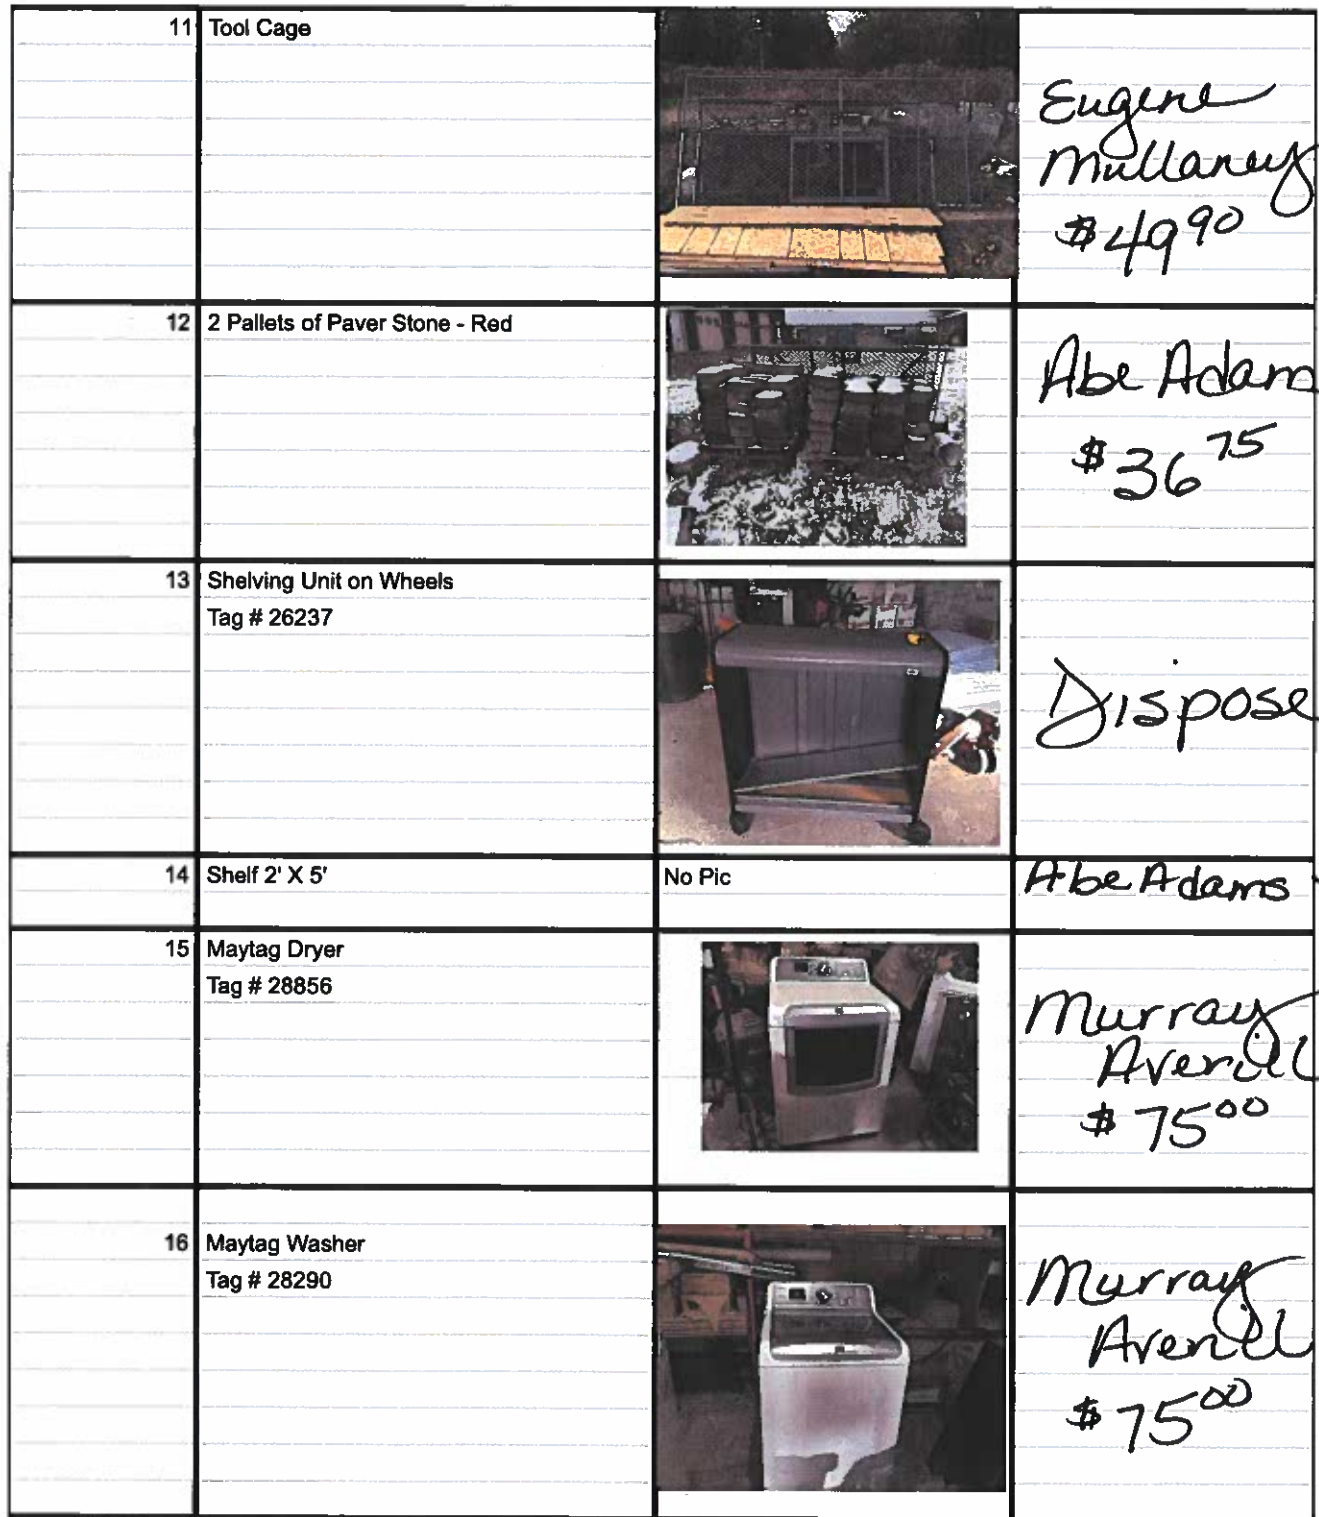 11 Tool Cage
Eugene
Mullaney
$49 90
12 2 Pallets of Paver Stone - Red
Abe Adam
$36 75
13 Shelving Unit on Wheels
Tag # 26237
Dispose
14 Shelf 2' X 5' No Pic Abe Adams
15 Maytag Dryer
Tag # 28856
Murray
Averill
$75 00
16 Maytag Washer
Tag # 28290
Murray
Averill
$75 00